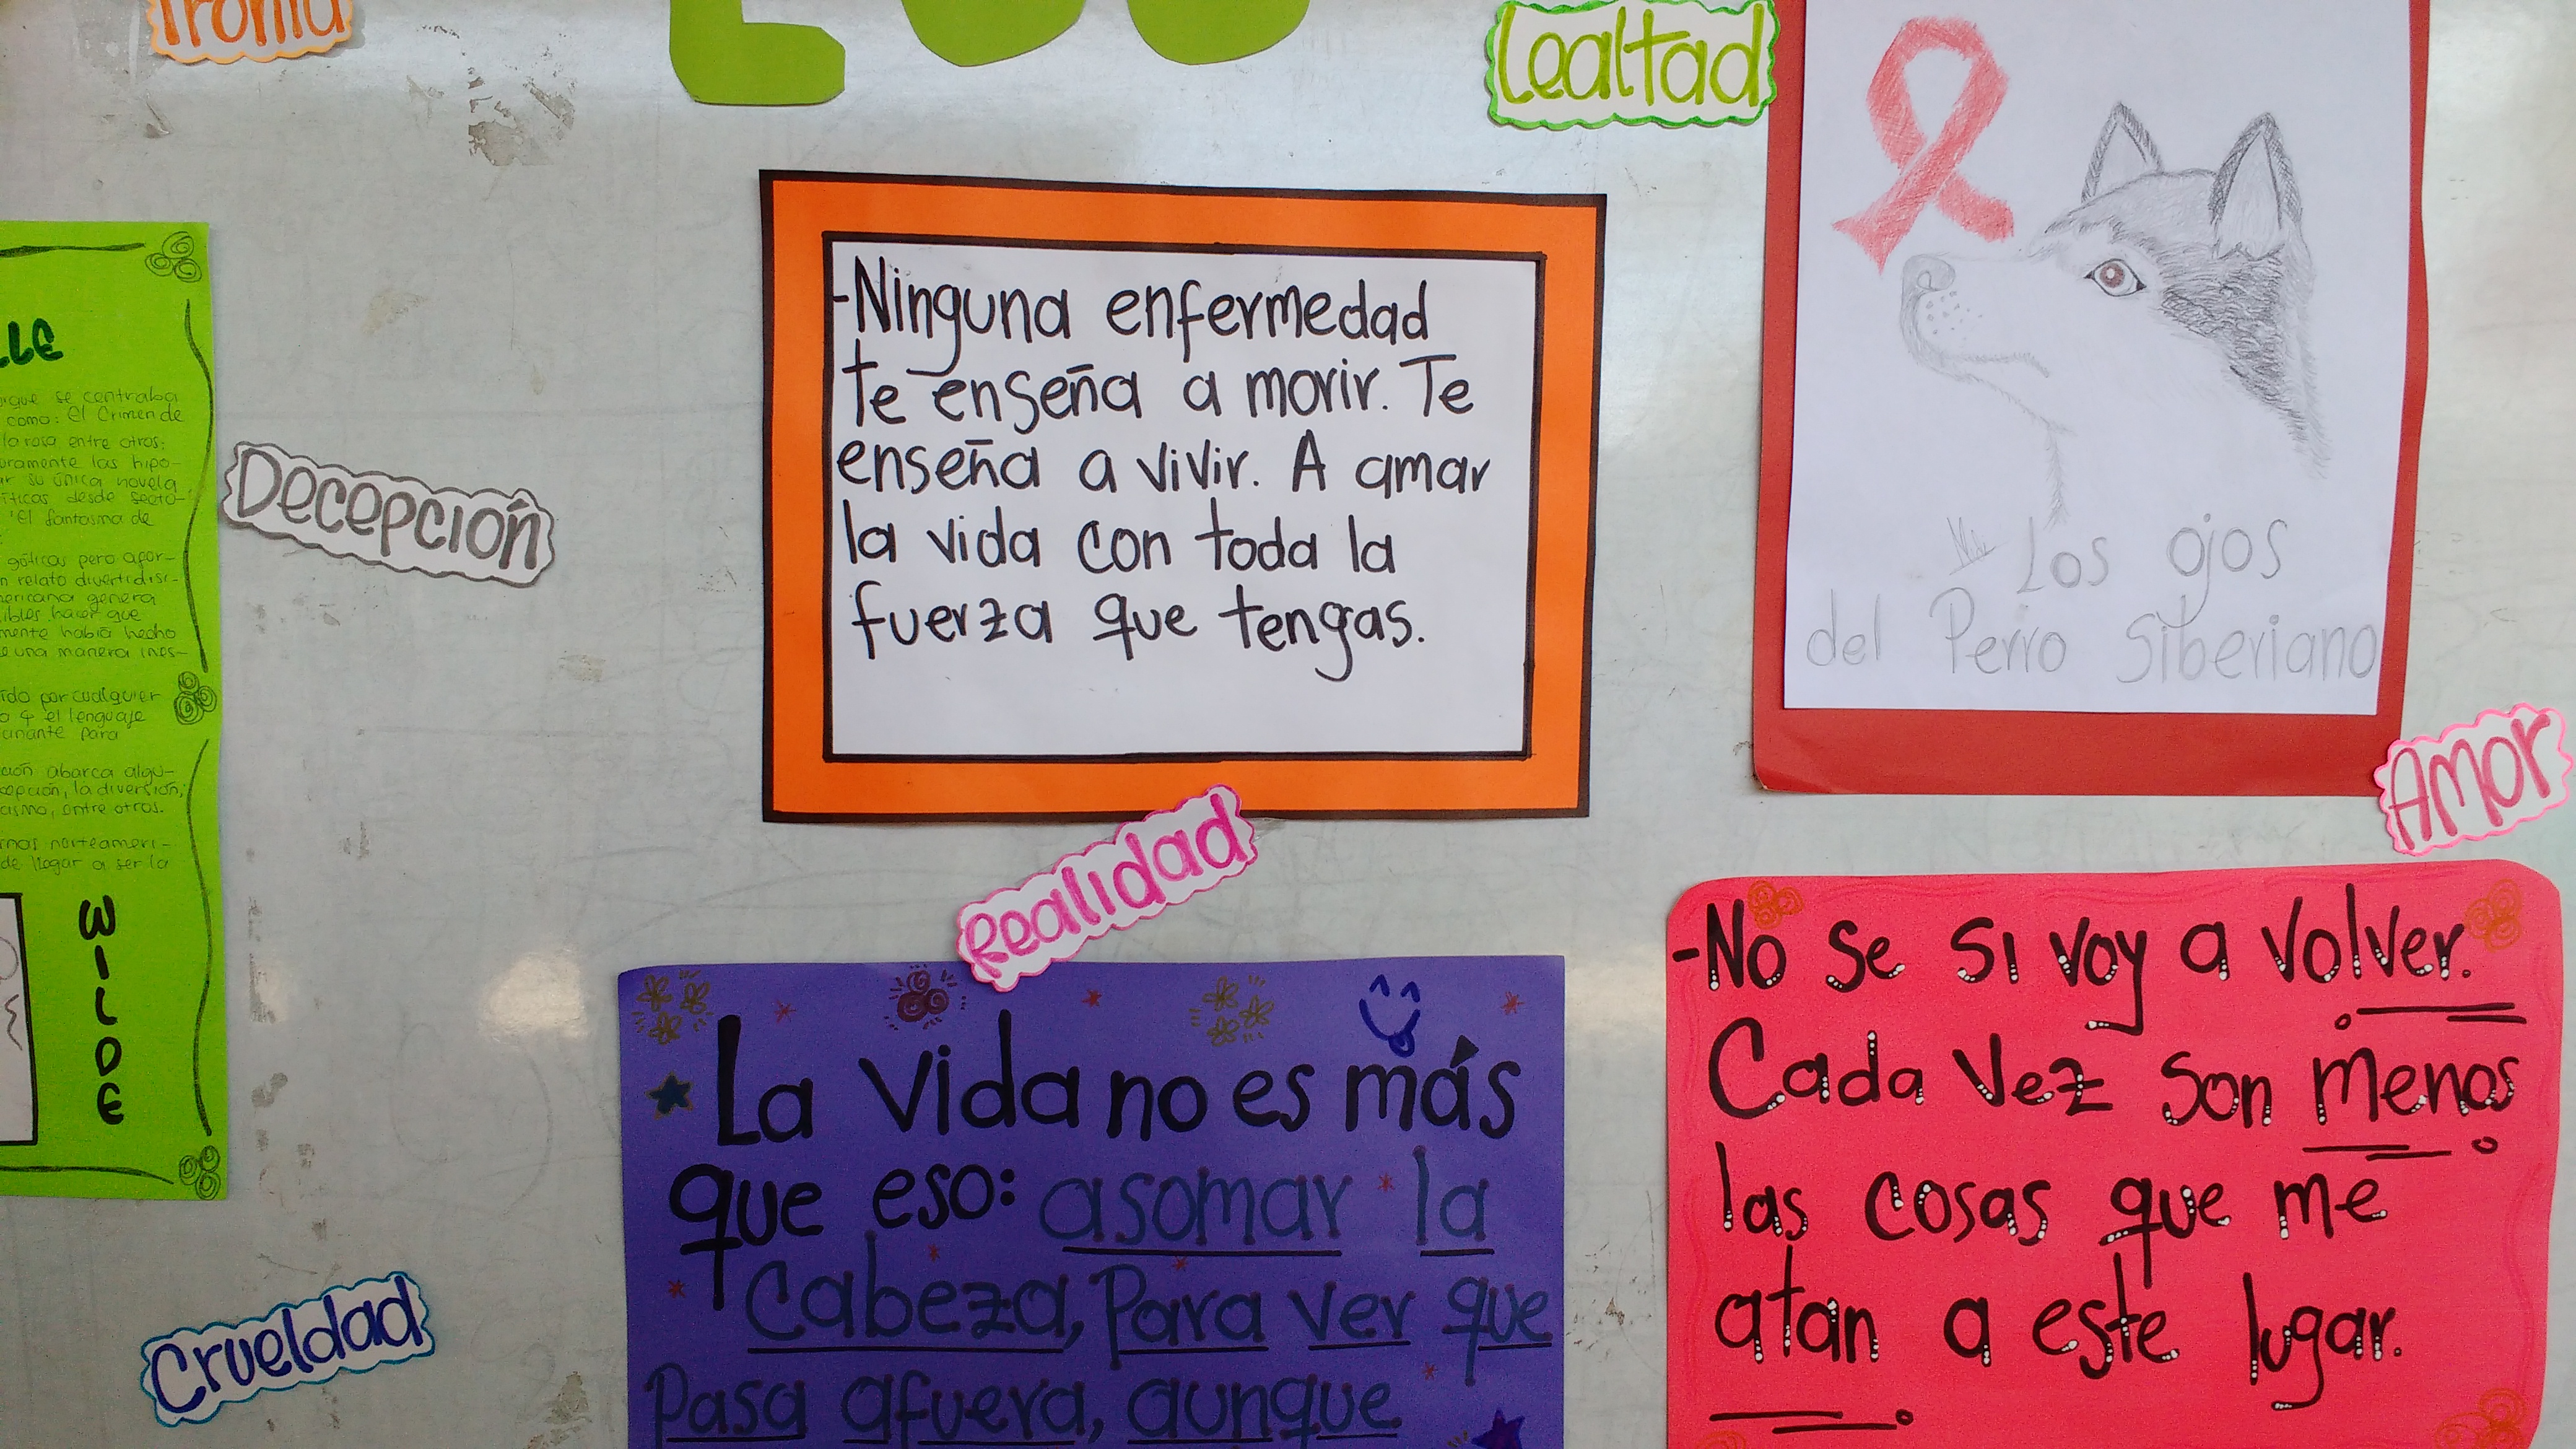 Ironía
Lealtad
LLE
se centraba
como: El Crimen de
la rosa entre otros;
las hipo-
su única novela
desde secto-
"El fantasma de
góticas pero apor-
relato divertidisi-
genera
hacer que
había hecho
una manera ines-
por cualquier
el lenguaje
para
abarca algu-
la diversión,
entre otros.
norteameri-
de llegar a ser la
WILDE
Decepción
Crueldad
-Ninguna enfermedad
te enseña a morir. Te
enseña a vivir. A amar
la vida con toda la
fuerza que tengas.
Los ojos
del Perro Siberiano
Realidad
Amor
La vida no es más
que eso: asomar la
Cabeza, Para ver que
Pasa afuera, aunque
-No se si voy a volver.
Cada vez son menos
las cosas que me
atan a este lugar.